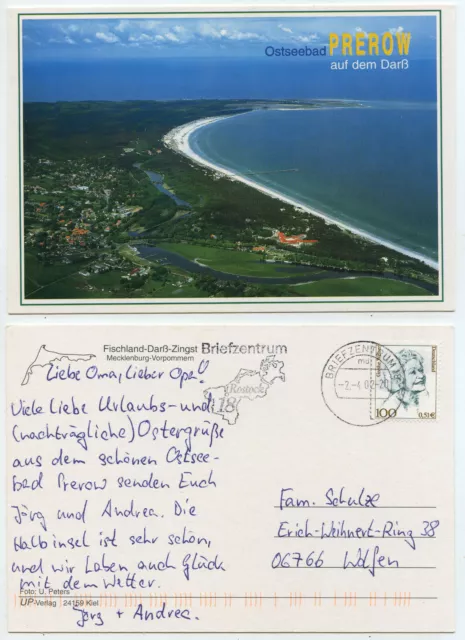 Ostseebad PREROW
auf dem Darß
Fischland-Darß-Zingst
Mecklenburg-Vorpommern
Briefzentrum
Rostock
18
BRIEFZENTRUM 18
-2.-4.02-20
Deutschland
100
0,51€
Liebe Oma, lieber Opa!
Viele liebe Urlaubs- und
(nachträgliche) Ostergrüße
aus dem schönen Ostsee-
bad Prerow senden Euch
Jörg und Andrea. Die
Halbinsel ist sehr schön,
und wir haben auch Glück
mit dem Wetter.
Jörg + Andrea.
Fam. Schulze
Erich-Weinert-Ring 38
06766 Wolfen
Foto: U. Peters
UP-Verlag 24159 Kiel